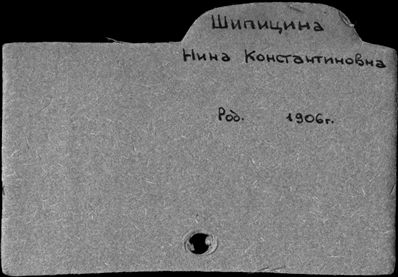 Шипицина
Нина Константиновна
Род. 1906г.